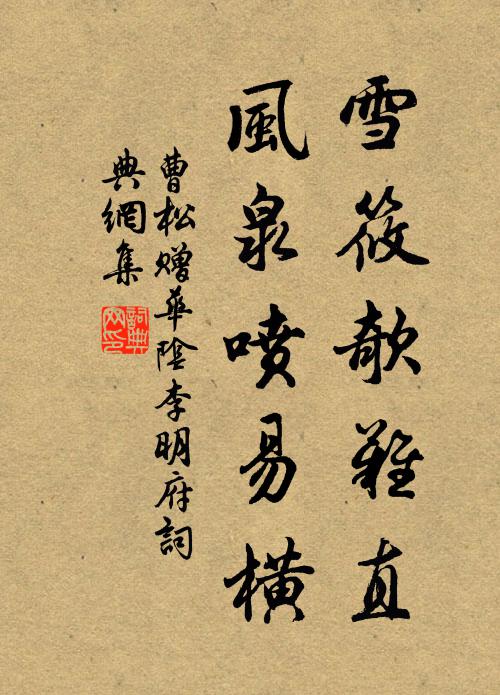 雪筱欹難直
風泉噴易橫
曹松贈華陰李明府詞
典網集
詞典
网印